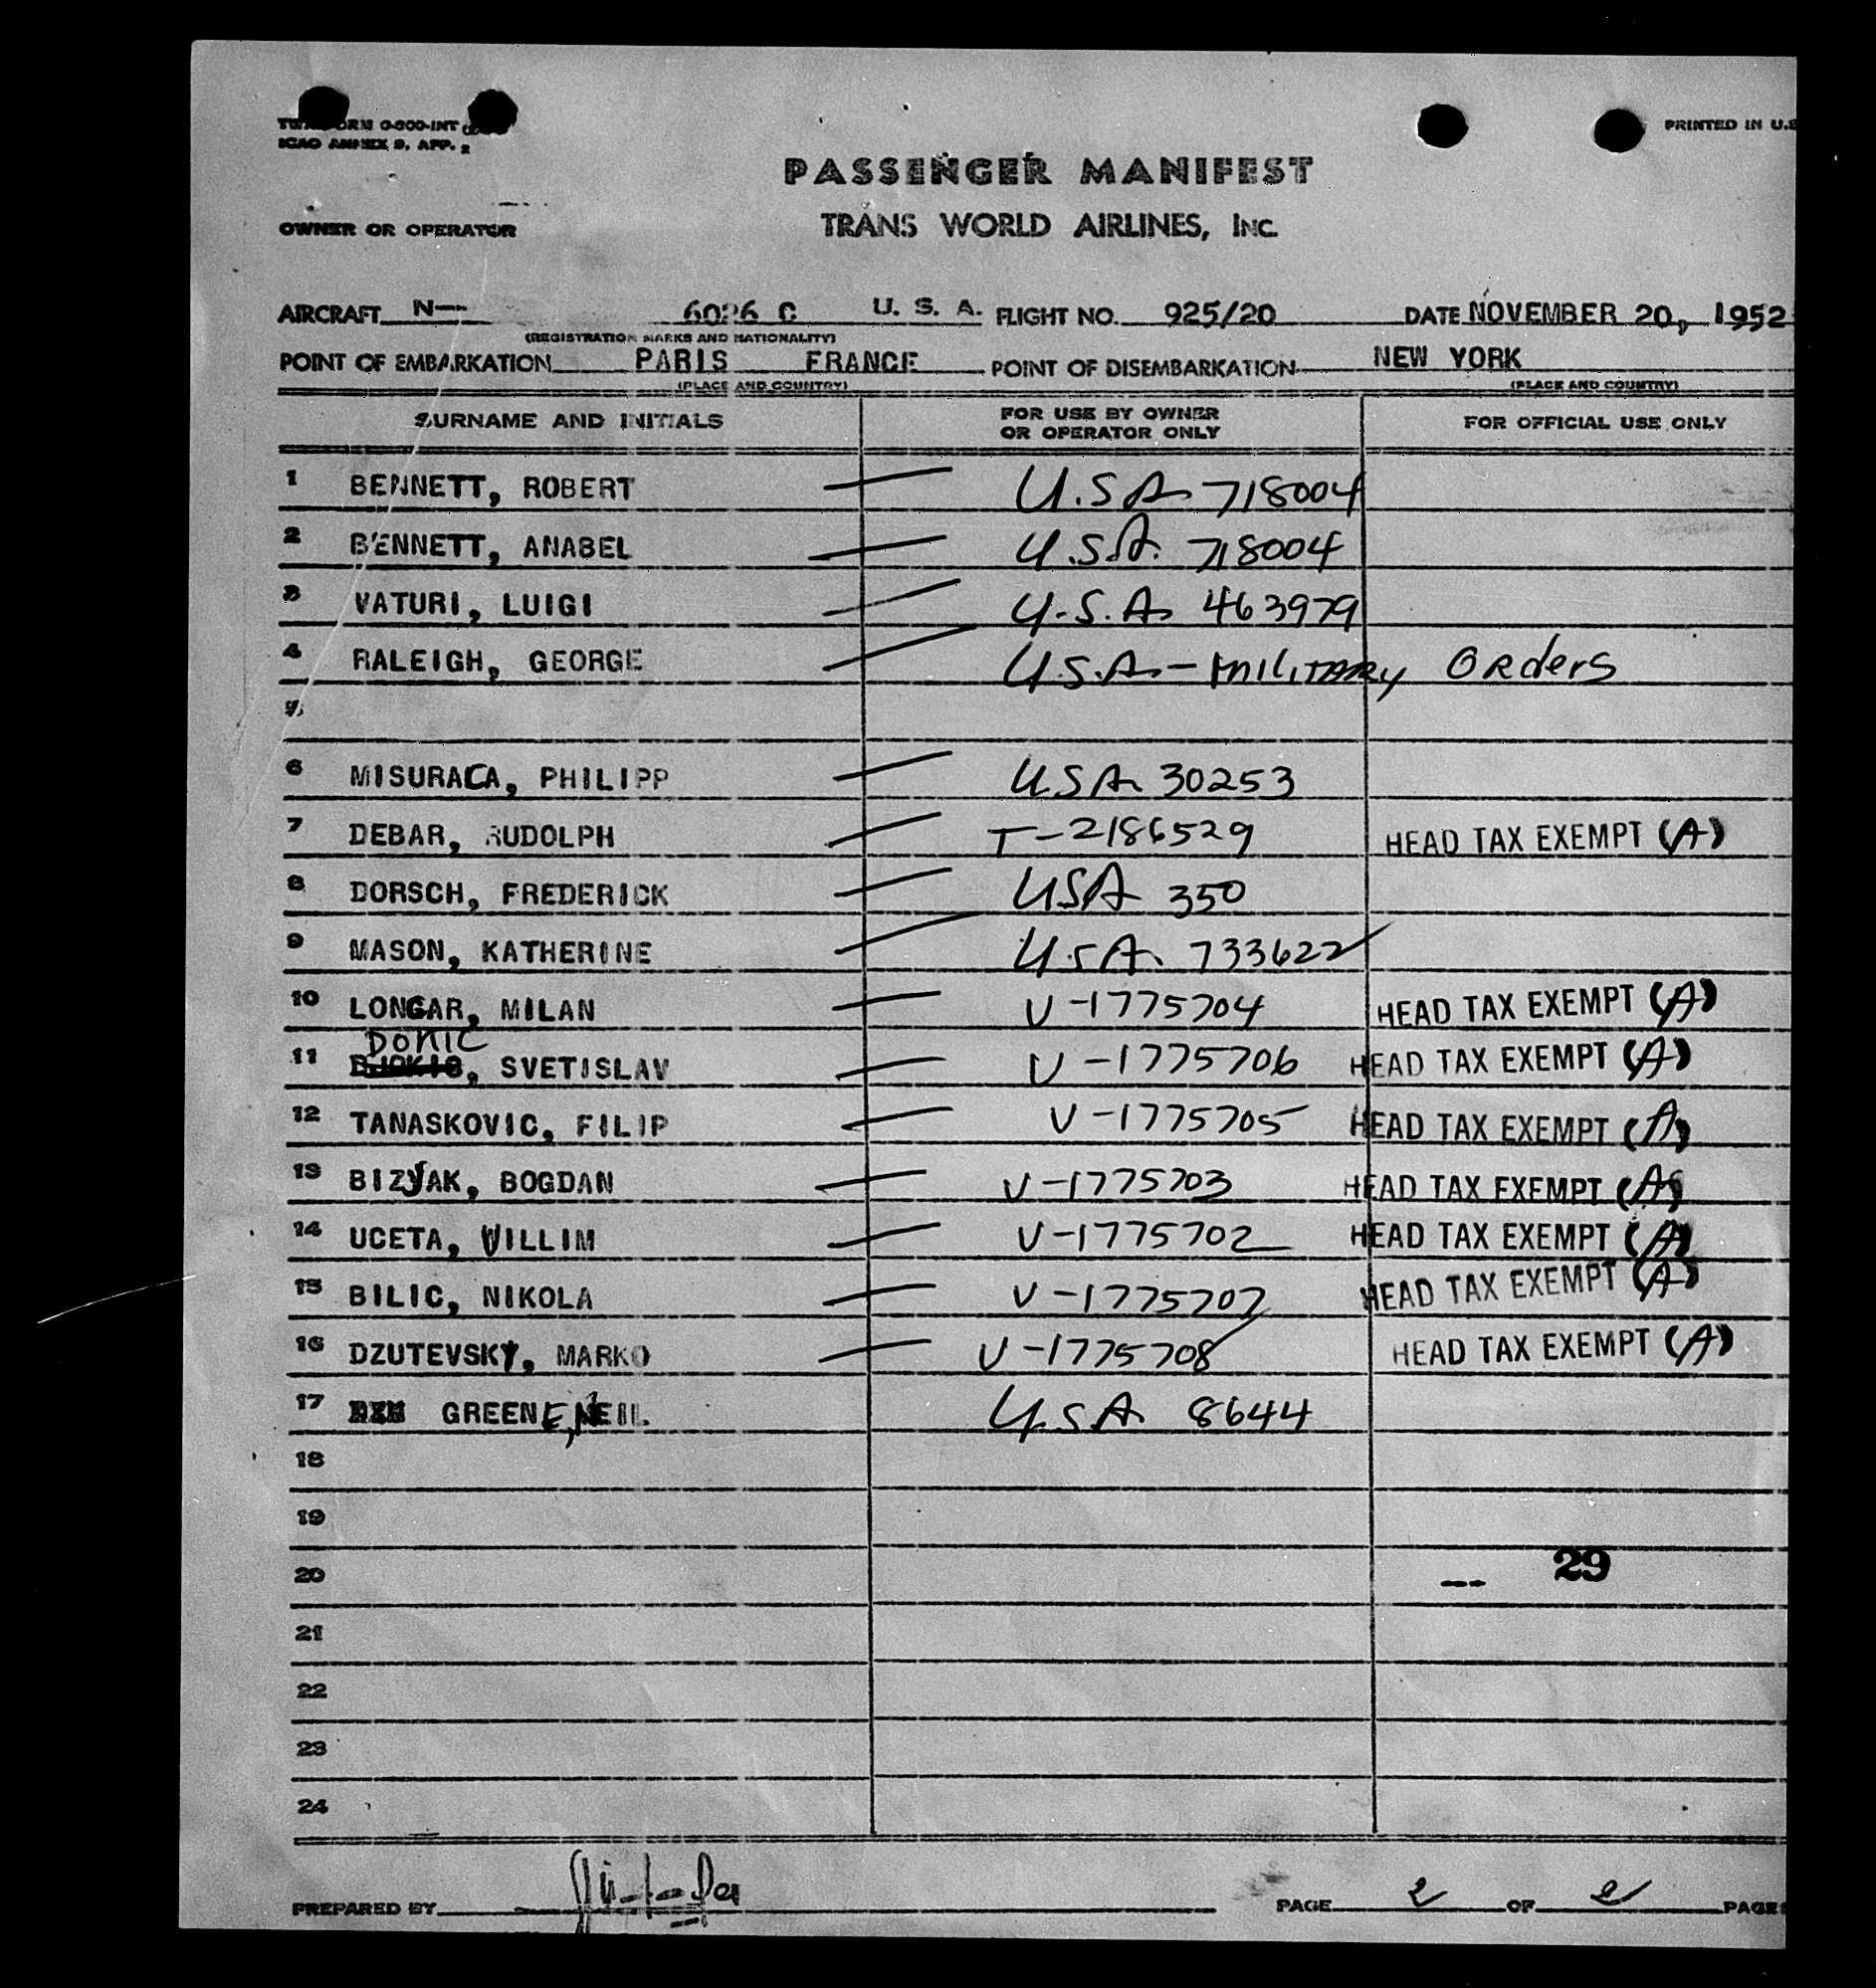 TWA FORM O-800-INT
ICAO ANNEX 9, APP. 2
PRINTED IN U.S
PASSENGER MANIFEST
TRANS WORLD AIRLINES, INC.
OWNER OR OPERATOR
AIRCRAFT N— 6026 C U. S. A. FLIGHT NO. 925/20 DATE NOVEMBER 20, 1952
(REGISTRATION MARKS AND NATIONALITY)
POINT OF EMBARKATION PARIS FRANCE POINT OF DISEMBARKATION NEW YORK
(PLACE AND COUNTRY) (PLACE AND COUNTRY)
SURNAME AND INITIALS FOR USE BY OWNER OR OPERATOR ONLY FOR OFFICIAL USE ONLY
1 BENNETT, ROBERT — U.S.A. 718004
2 BENNETT, ANABEL — U.S.A. 718004
3 VATURI, LUIGI — U.S.A. 463979
4 RALEIGH, GEORGE — U.S.A. - MILITARY ORDERS
5
6 MISURACA, PHILIPP — USA 30253
7 DEBAR, RUDOLPH — T-2186529 HEAD TAX EXEMPT (A)
8 DORSCH, FREDERICK — USA 350
9 MASON, KATHERINE — U.S.A. 733622
10 LONGAR, MILAN — V-1775704 HEAD TAX EXEMPT (A)
DOKIC
11 , SVETISLAV — V-1775706 HEAD TAX EXEMPT (A)
12 TANASKOVIC, FILIP — V-1775705 HEAD TAX EXEMPT (A)
13 BIZJAK, BOGDAN — V-1775703 HEAD TAX EXEMPT (A)
14 UCETA, VILLIM — V-1775702 HEAD TAX EXEMPT (A)
15 BILIC, NIKOLA — V-1775707 HEAD TAX EXEMPT (A)
16 DZUTEVSKY, MARKO — V-1775708 HEAD TAX EXEMPT (A)
17 GREENE, NEIL U.S.A. 8644
18
19
20 29
21
22
23
24
PREPARED BY PAGE 2 OF 2 PAGES